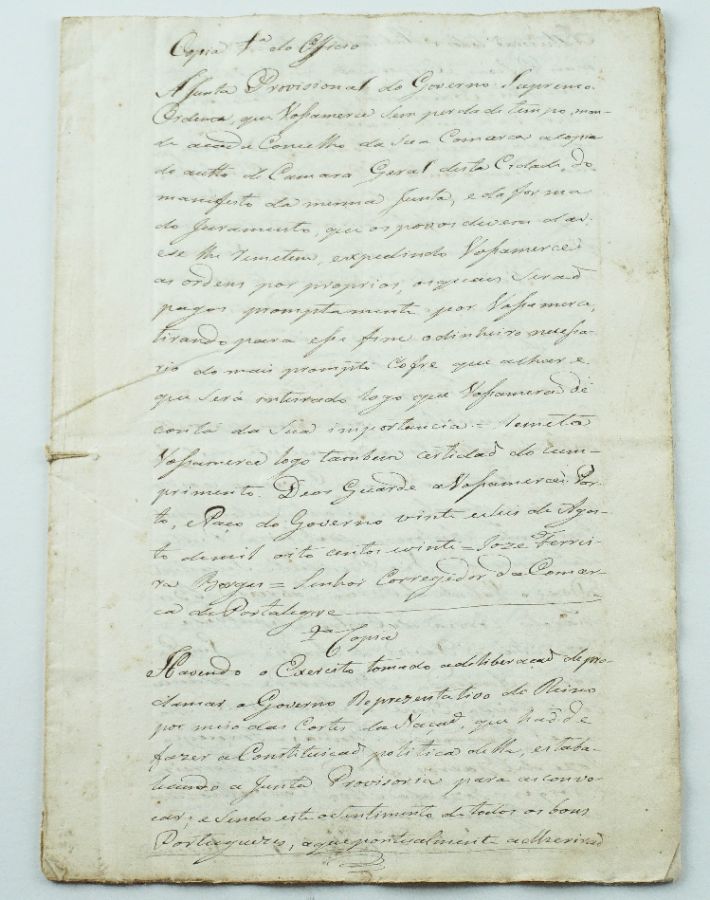 Copia 1ª do Officio
A Junta Provisional do Governo Supremo
Ordena, que Vossamerce sem perda de tempo, man-
de a cada Concelho da sua Comarca a copia
do autto de Camara Geral desta Cidade, do
manifesto da mesma Junta, e da forma
do Juramento, que os povos devem dar,
e se lhe remetem, expedindo Vossamerce
as ordens por proprios, os quaes seraõ
pagos promptamente por Vossamerce,
tirando para esse fim o dinheiro necessa-
rio do mais prompto Cofre que achar e
que será inteirado logo que Vossamerce dê
conta da sua importancia = Remeta
Vossamerce logo tambem certidaõ do cum-
primento. Deos Guarde a Vossamerce. Por-
to, e Paço do Governo vinte e seis de Agos-
to de mil oito centos e vinte = Joze Ferrei-
ra Borges = Senhor Corregedor da Comar-
ca de Portalegre
2ª Copia
Havendo o Exercito tomado a deliberaçaõ de pro-
clamar o Governo Reprezentativo do Reino
por meio das Cortes da Naçaõ, que haõ de
fazer a Constituiçaõ politica della, estabe-
lecendo a Junta Provisoria para as convo-
car; e sendo este o sentimento de todos os bons
Portuguezes, a que pontualmente adheriraõ